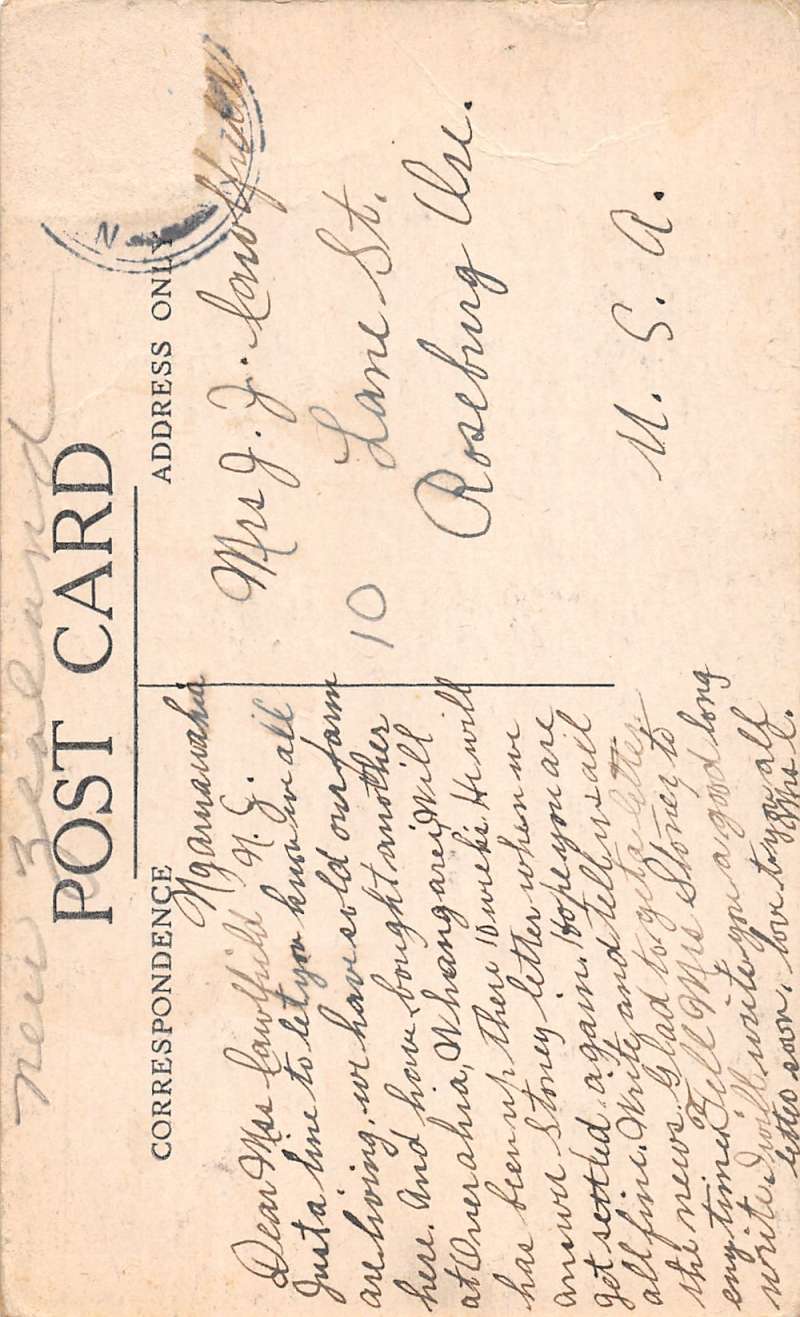 New Zealand
POST CARD
CORRESPONDENCE
ADDRESS ONLY
N
Ngaruawahia
N. Z.
Dear Mrs Cawlfield
Just a line to let you know we all
are living, we have sold our farm
here. And have bought another
at Onerahia, Whangarei Will
has been up there 10 weeks He will
answer Stoney letter when we
get settled again. Hope you are
all fine. Write and tell us all
the news. Glad to get a letter
eny time. Tell Mrs Stoney to
write I will write you a good long
letter soon, love to you all
Mrs C.
Mrs J. J. Cawlfield
10
Lane St.
Roseburg Ore.
U. S. A.